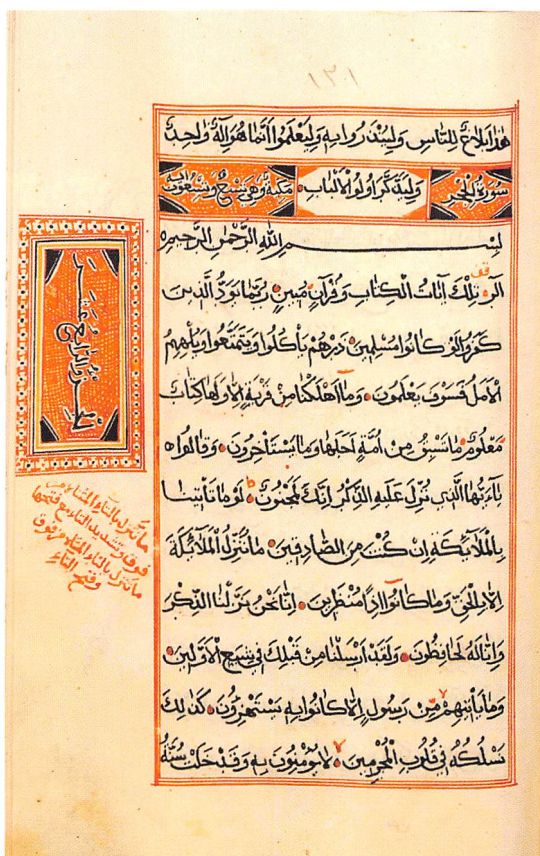 ١٣١
هٰذا بلاغ للناس ولينذروا به وليعلموا أنما هو إله واحد
سورة الحجر
وليذكر أولوا الألباب
مكية وهي تسع وتسعون آية
بسم الله الرحمن الرحيم
الر تلك آيات الكتاب وقرآن مبين ربما يود الذين
كفروا لو كانوا مسلمين ذرهم يأكلوا ويتمتعوا ويلههم
الأمل فسوف يعلمون وما أهلكنا من قرية إلا ولها كتاب
معلوم ما تسبق من أمة أجلها وما يستأخرون وقالوا
يا أيها الذي نزل عليه الذكر إنك لمجنون لو ما تأتينا
بالملائكة إن كنت من الصادقين ما ننزل الملائكة
إلا بالحق وما كانوا إذا منظرين إنا نحن نزلنا الذكر
وإنا له لحافظون ولقد أرسلنا من قبلك في شيع الأولين
وما يأتيهم من رسول إلا كانوا به يستهزؤن كذلك
نسلكه في قلوب المجرمين لا يؤمنون به وقد خلت سنة
الجزء الرابع عشر
ما تنزل بالتاء المثناة من
فوق وتشديد التاء مع فتحها
ما تنزل بالتاء المثناة من فوق
وفتح التاء